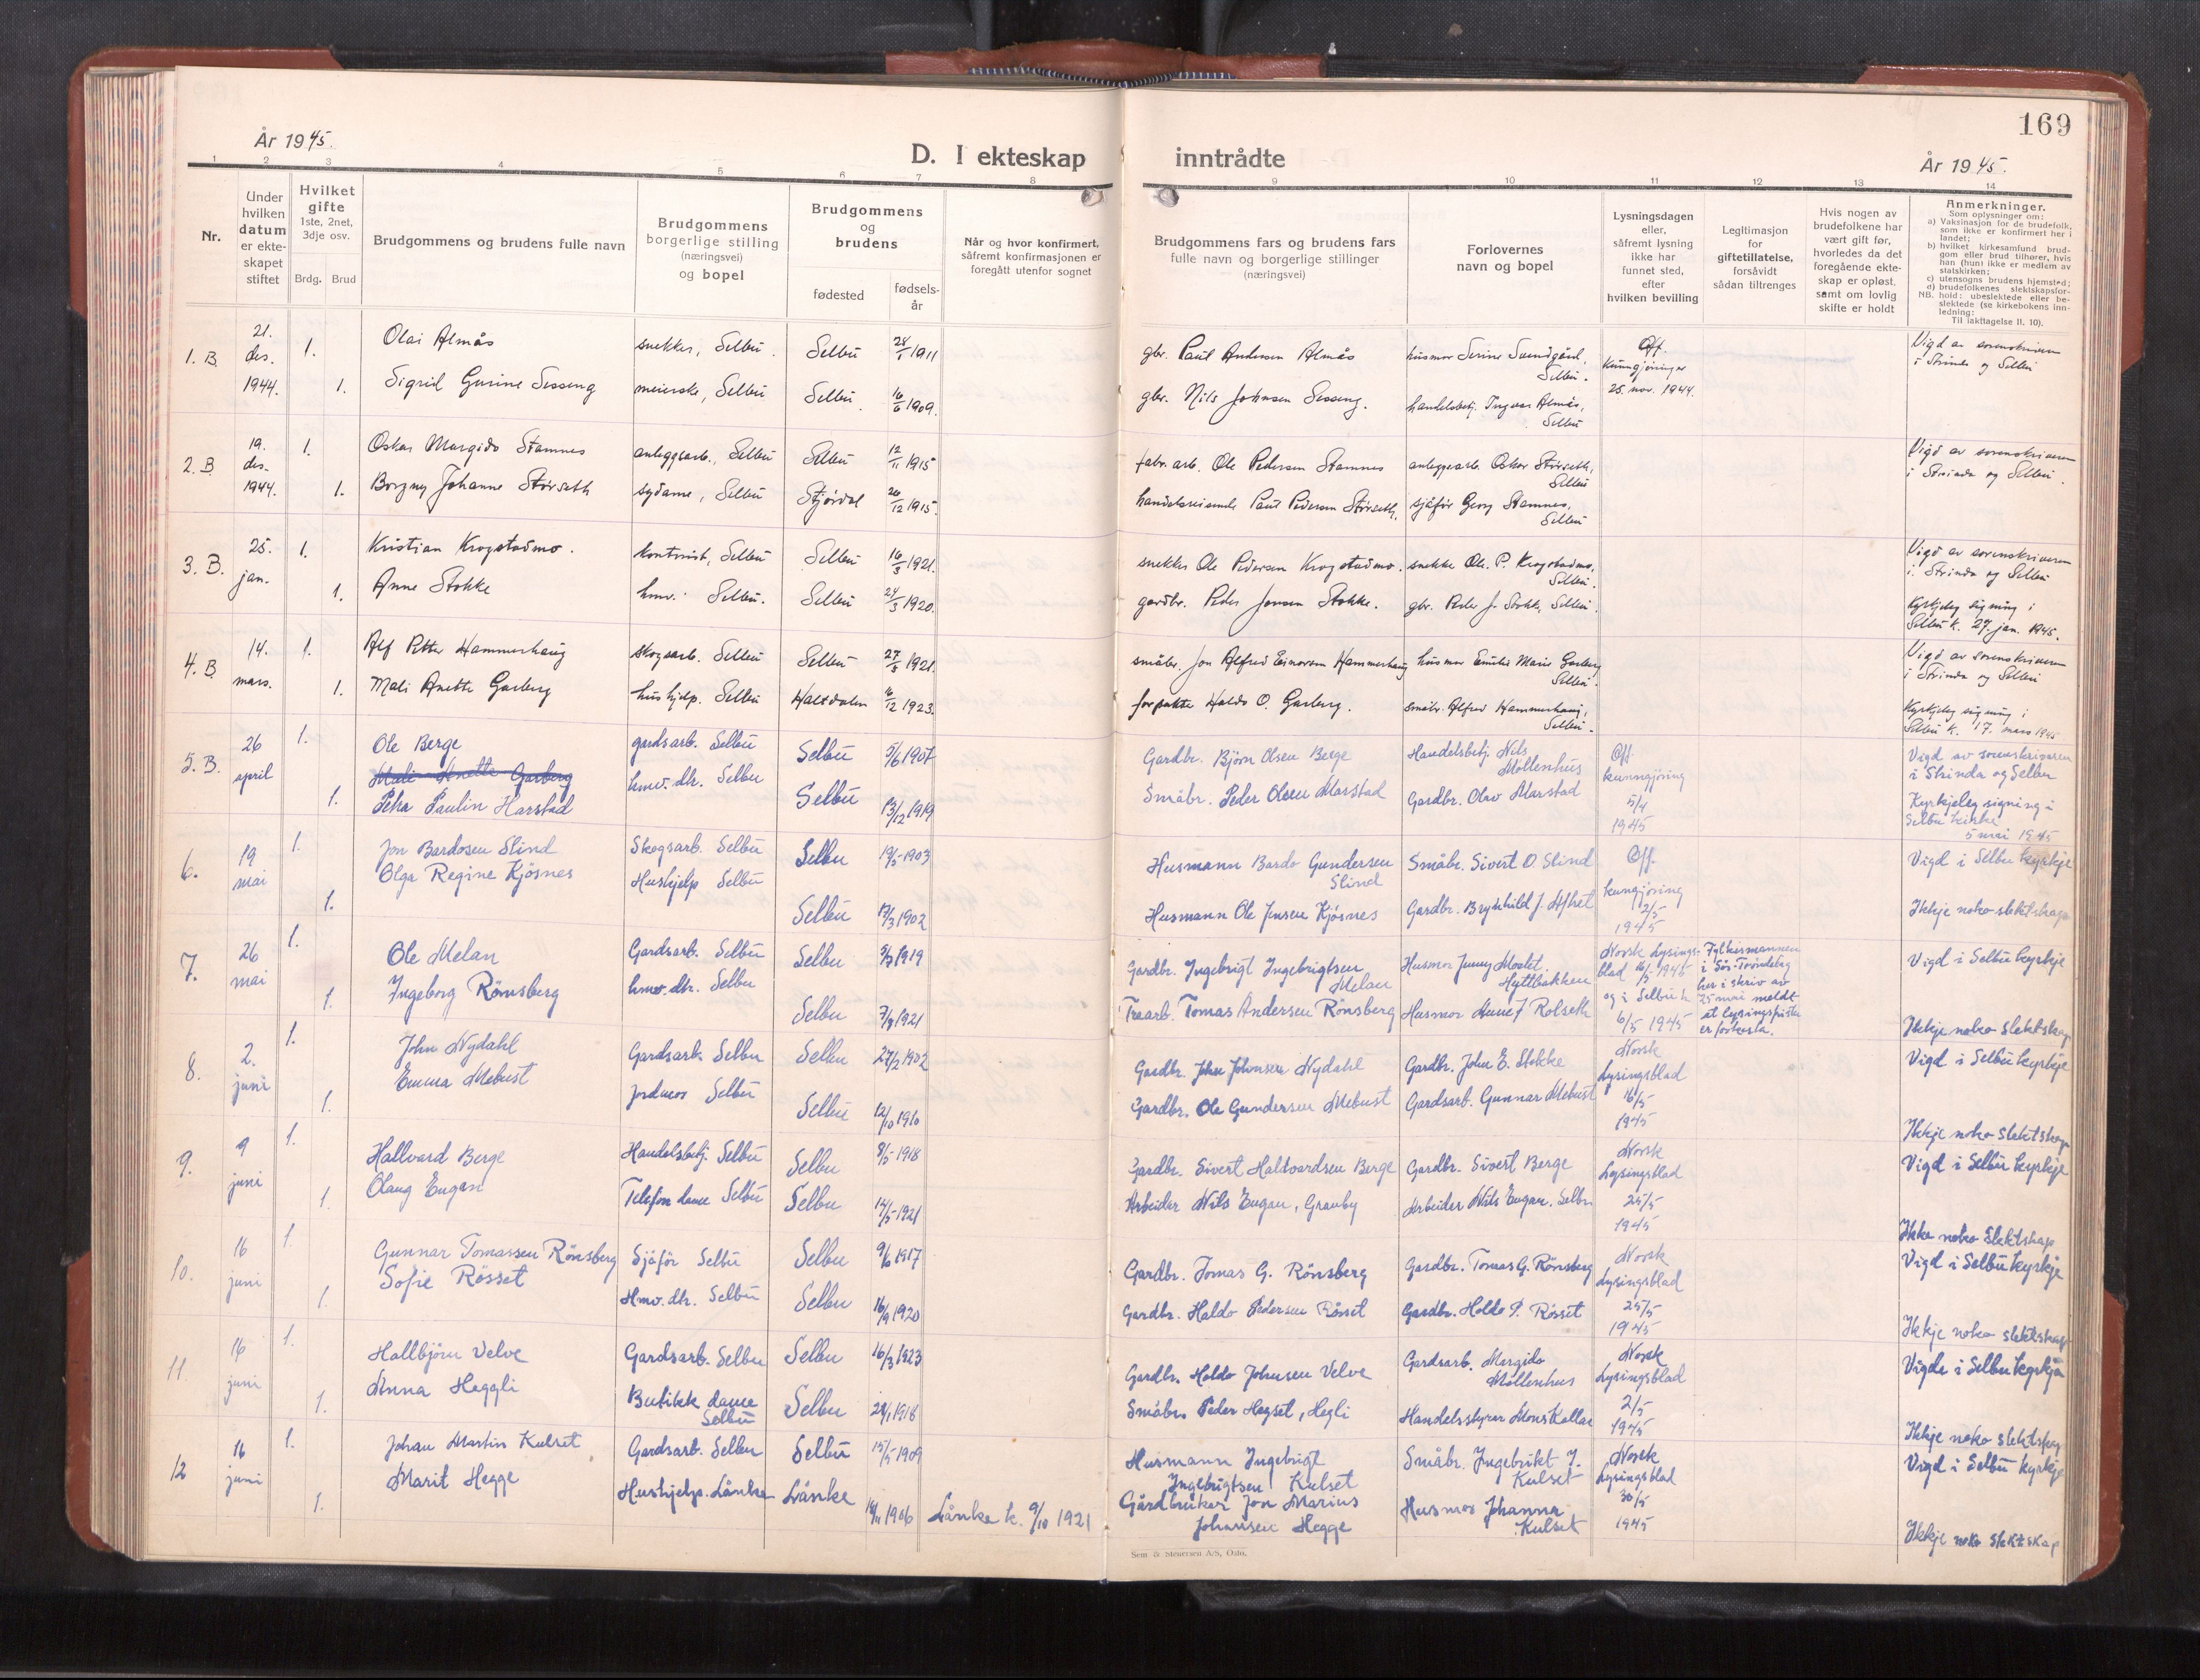 År 1945.
D. I ekteskap
inntrådte
169
År 1945.
1 2 3 4 5 6 7 8 9 10 11 12 13 14
Nr.
Under hvilken datum er ekteskapet stiftet
Hvilket gifte 1ste, 2net, 3dje osv.
Brdg. Brud
Brudgommens og brudens fulle navn
Brudgommens borgerlige stilling (næringsvei) og bopel
Brudgommens og brudens
fødested
fødsels-år
Når og hvor konfirmert, såfremt konfirmasjonen er foregått utenfor sognet
Brudgommens fars og brudens fars fulle navn og borgerlige stillinger (næringsvei)
Forlovernes navn og bopel
Lysningsdagen eller, såfremt lysning ikke har funnet sted, efter hvilken bevilling
Legitimasjon for giftetillatelse, forsåvidt sådan tiltrenges
Hvis nogen av brudefolkene har vært gift før, hvorledes da det foregående ekteskap er opløst, samt om lovlig skifte er holdt
Anmerkninger.
Som oplysninger om:
a) Vaksinasjon for de brudefolk, som ikke er konfirmert her i landet;
b) hvilket kirkesamfund brudgom eller brud tilhører, hvis han (hun) ikke er medlem av statskirken;
c) utensogns brudens hjemsted;
d) brudefolkenes slektskapsforhold: ubeslektede eller beslektede (se kirkebokens innledning:
NB. Til iakttagelse II. 10).
1. B. 21. des. 1944. 1. Olai Almås snekker, Selbu. Selbu 1911 gbr. Paul Andersen Almås husmor Serine Sandgård, Selbu. Off. kunngjøringer 25. nov. 1944. Vigd av sorenskriveren i Strinda og Selbu
1. Sigrid Gurine Sesseng meierske, Selbu Selbu 16/6 1909. gbr. Nils Johnsen Sesseng. handelsbetj. Ingvar Almås, Selbu
2. B 19. des. 1944. 1. Oskar Margido Stamnes anleggsarb., Selbu Selbu 12/11 1915 fabr. arb. Ole Pedersen Stamnes anleggsarb. Oskar Størseth, Selbu Vigd av sorenskriveren i Strinda og Selbu.
1. Borgny Johanne Størseth sydame, Selbu Stjørdal 26/12 1915. handelsreisende Paul Pedersen Størseth. sjåfør Georg Stamnes, Selbu
3. B. 25. jan. 1. Kristian Krogstadmo. kontorist, Selbu Selbu 16/3 1921. snekker Ole Pedersen Krogstadmo. snekker Ole P. Krogstadmo, Selbu. Vigd av sorenskriveren i Strinda og Selbu
1. Anne Stokke hmv. Selbu. Selbu 24/3 1920. gardbr. Peder Jonsen Stokke. gbr. Peder J. Stokke, Selbu. Kyrkjeleg signing i Selbu k. 27. jan. 1945.
4. B 14. mars. 1. Alf Petter Hammerhaug skogsarb. Selbu Selbu 27/5 1921. småbr. Jon Alfred Einarsen Hammerhaug husmor Emilie Marie Garberg Selbu. Vigd av sorenskriveren i Strinda og Selbu
1. Mali Anette Garberg hushjelp. Selbu Haltdalen 16/12 1923. forpakter Haldo O. Garberg. småbr. Alfred Hammerhaug, Selbu. Kyrkjeleg signing i Selbu k. 17. mars 1945
5. B. 26 april 1. Ole Berge gardsarb. Selbu Selbu 5/6 1907 Gardbr. Bjørn Olsen Berge Handelsbetj. Nils Møllenhus Off. kunngjøring 5/4 1945 Vigd av sorenskrivaren i Strinda og Selbu
Mali Anette Garberg
1. Petra Paulin Harstad hmv. dtr. Selbu Selbu 13/12 1919 Småbr. Peder Olsen Marstad Gardbr. Olav Marstad Kyrkjeleg signing i Selbu kirke 5 mai 1945
6. 19 mai 1. Jon Bardosen Slind Skogsarb. Selbu Selbu 19/5 1903 Husmann Bardo Gundersen Slind Småbr. Sivert O. Slind Off. kungjøring 2/5 1945 Vigd i Selbu kyrkje
1. Olga Regine Kjøsnes Hushjelp Selbu Selbu 17/3 1902 Husmann Ole Jensen Kjøsnes Gardbr. Brynhild J. Aftret Ikkje noko slektskap
7. 26 mai 1. Ole Melan Gardsarb. Selbu Selbu 1919 Gardbr. Ingebrigt Ingebrigtsen Melan Husmor Jenny Moslet Hyttbakken Norsk Lysingsblad 16/5 1945 og i Selbu k 6/5 1945 Fylkesmannen i Sør-Trøndelag har i skriv av 25 mai meldt at lysingsfristen er forkorta. Vigd i Selbu kyrkje
1. Ingeborg Rønsberg hmv. dtr. Selbu Selbu 1921 Trearb. Tomas Andersen Rønsberg Husmor Anne J Rolseth Ikkje noko slektskap
8. 2. juni 1. John Nydahl Gardsarb. Selbu Selbu 27/2 1902 Gardbr. John Johnsen Nydahl Gardbr. John E. Stokke Norsk Lysingsblad 16/5 1945 Vigd i Selbu kyrkje
1. Emma Mebust Jordmor Selbu Selbu 12/10 1910 Gardbr. Ole Gundersen Mebust Gardsarb. Gunnar Mebust Ikkje noko slektskap
9. 9 juni 1. Hallvard Berge Handelsbetj. Selbu Selbu 8/5 1918 Gardbr. Sivert Haldvardsen Berge Gardbr. Sivert Berge Norsk Lysingsblad 25/5 1945 Vigd i Selbu kyrkje
1. Olaug Engan Telefondame Selbu Selbu 14/5 1921 Arbeider Nils Engan, Granby Arbeider Nils Engan, Selbu Ikke noko slektskap
10. 16 juni 1. Gunnar Tomassen Rønsberg Sjåfør Selbu Selbu 9/6 1917 Gardbr. Tomas G. Rønsberg Gardbr. Tomas G. Rønsberg Norsk Lysingsblad 25/5 1945 Vigd i Selbu kyrkje
1. Sofie Røsset Hmv. dtr. Selbu Selbu 16/9 1920 Gardbr. Haldo Pedersen Røsset Gardbr. Haldo P. Røsset Ikkje noko slektskap
11. 16 juni 1. Hallbjørn Velve Gardsarb. Selbu Selbu 16/3 1923 Gardbr. Haldo Johnsen Velve Gardsarb. Margido Møllenhus Norsk Lysingsblad 2/5 1945 Vigde i Selbu kyrkja
1. Anna Heggli Butikkdame Selbu Selbu 24/1 1918 Småbr. Peder Hegset, Hegli Handelsstyrar Mons Kallar Ikkje noko slektskap
12 16 juni 1. Johan Martin Kulset Gardsarb. Selbu Selbu 15/5 1909 Husmann Ingebrigt Ingebrigtsen Kulset Småbr. Ingebrikt J. Kulset Norsk Lysingsblad 30/5 1945 Vigd i Selbu kyrkje
1. Marit Hegge Hushjelp. Lånke Lånke 14/11 1906 Lånke k. 9/10 1921 Gårdbruker Jon Marius Johansen Hegge Husmor Johanna Kulset Ikkje noko slektskap
Sem & Stenersen A/S, Oslo.